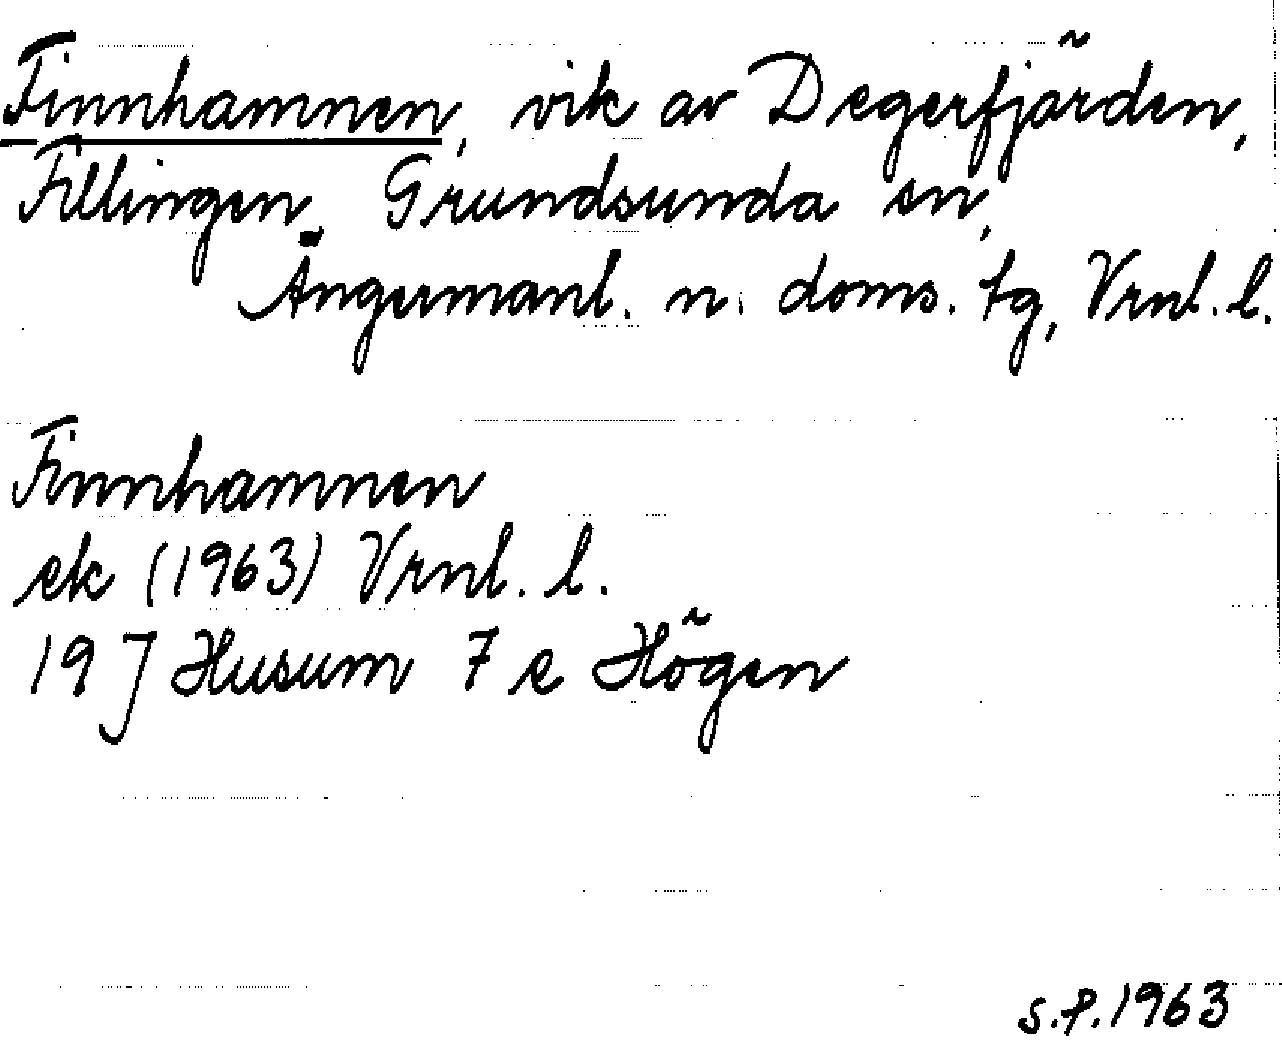 Finnhamnen, vik av Degerfjärden,
Fillingen, Grundsunda sn,
Ångermanl. n. doms. tg, Vrnl. l.
Finnhamnen
ek (1963) Vrnl. l.
19 J Husum 7 e Högen
s.f. 1963